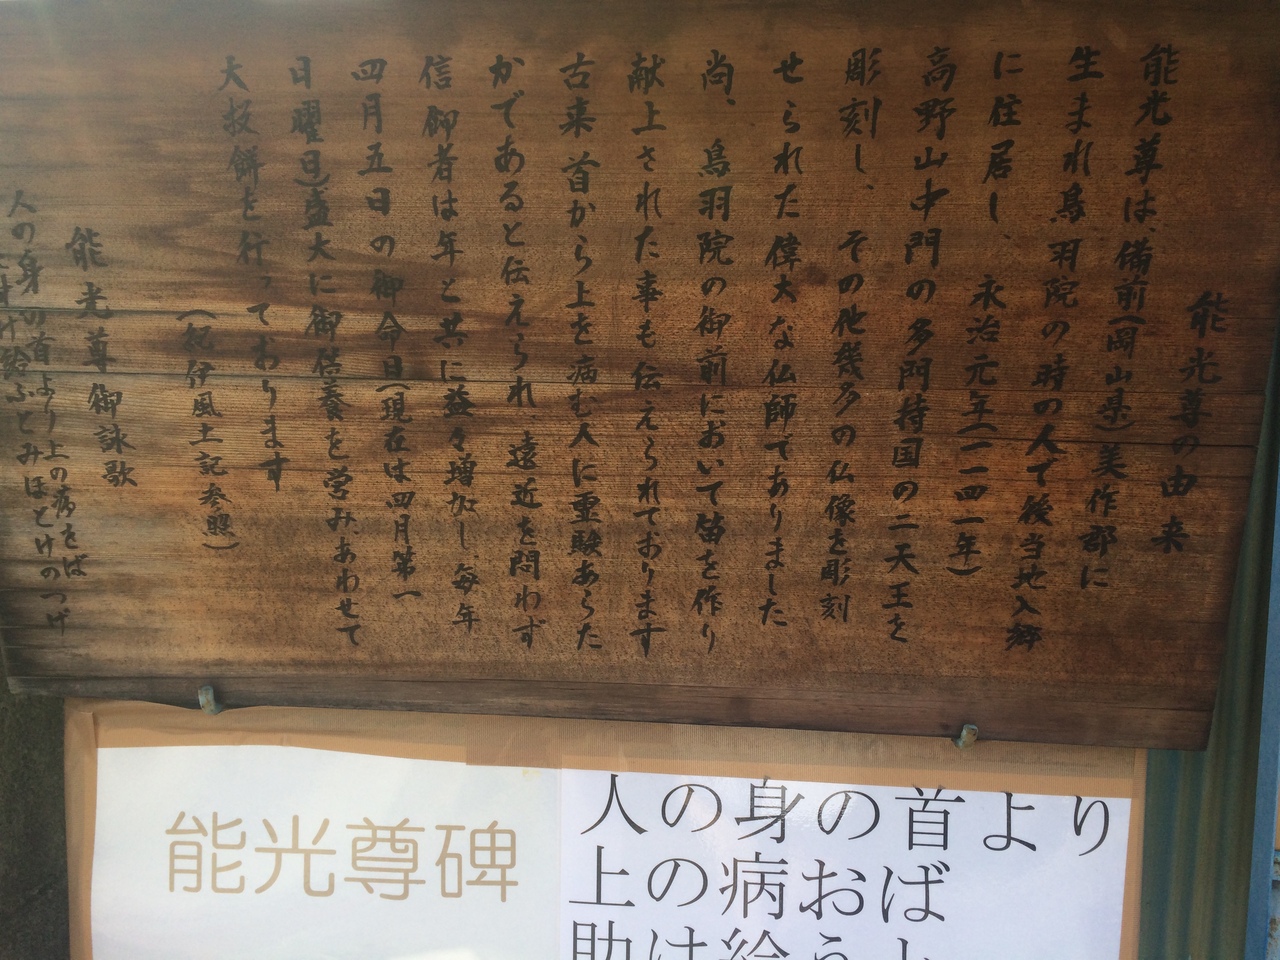 能光尊の由来
能光尊は、備前(岡山県)美作郡に
生まれ鳥羽院の時の人で後当地入郷
に住居し、永治元年(一一四一年)
高野山中門の多門持国の二天王を
彫刻し、その他幾多の仏像を彫刻
せられた偉大な仏師でありました
尚、鳥羽院の御前において笛を作り
献上された事も伝えられております
古来首から上を病む人に重験あらた
かであると伝えられ遠近を問わず
信御者は年と共に益々増加し、毎年
四月五日の御命日(現在は四月第一
日曜日)盛大に御供養を営み、あわせて
大投餅を行っております
(紀伊風土記参照)
能光尊御詠歌
人の身の首より上の病をば
け給ふとみほとけのつげ
能光尊碑
人の身の首より
上の病おば
助け給うと